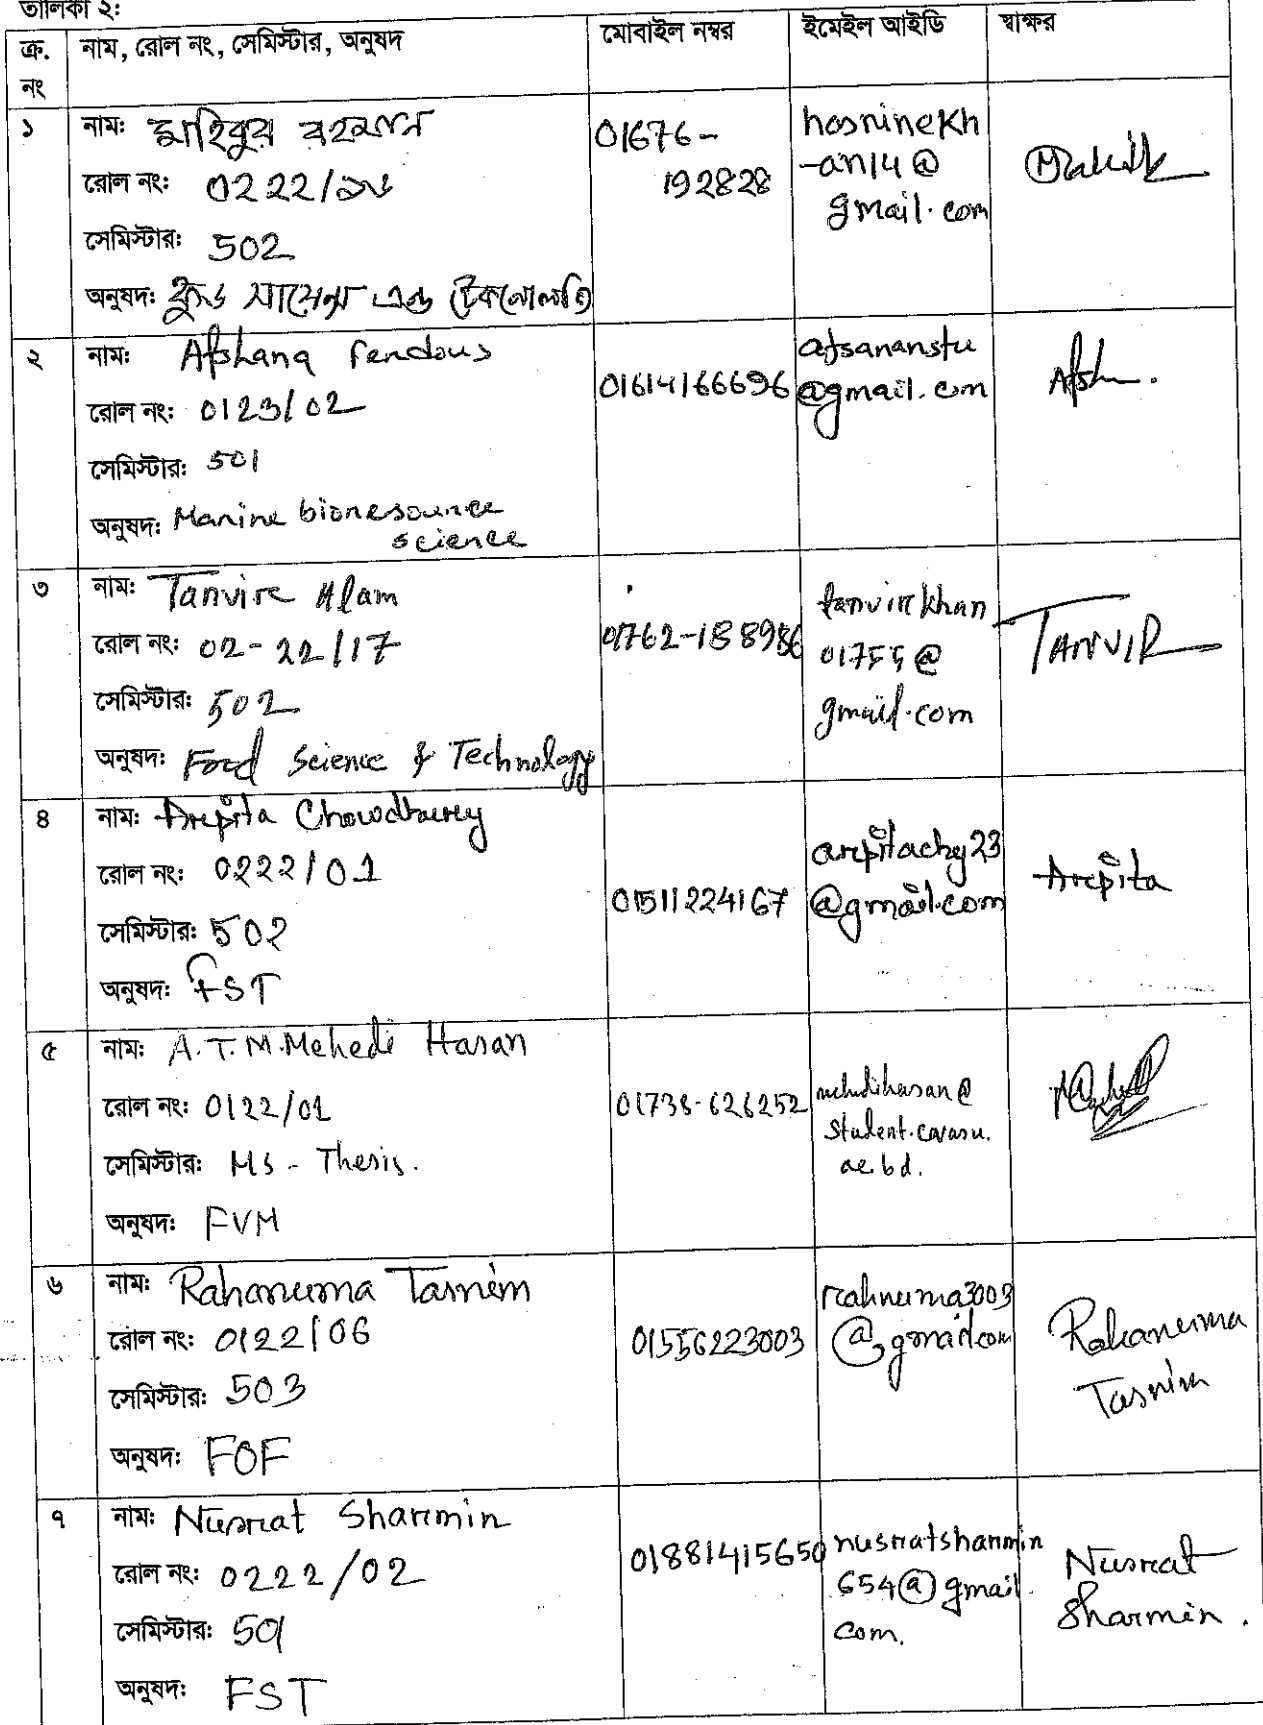 তালিকা ২:
ক্র. নং | নাম, রোল নং, সেমিস্টার, অনুষদ | মোবাইল নম্বর | ইমেইল আইডি | স্বাক্ষর
১
নামঃ মাহিবুর রহমান
রোল নং: 0222/
সেমিস্টার: 502
অনুষদ: ফুড সায়েন্স এন্ড টেকনোলজি
01676-
192828
hosninekh
-an14@
gmail.com
২
নামঃ Afshana ferdous
রোল নং: 0123/02
সেমিস্টার: 501
অনুষদ: Marine bioresource
science
01614166696
afsananstu
@gmail.com
Afsh
৩
নামঃ Tanvire Alam
রোল নং: 02-22/17
সেমিস্টার: 502
অনুষদ: Food Science & Technology
01762-188986
tanvirekhan
01755@
gmail.com
TANVIR
৪
নামঃ Arepita Chowdhurey
রোল নং: 0222/01
সেমিস্টার: 502
অনুষদ: FST
01511224167
arepitachy23
@gmail.com
Arepita
৫
নামঃ A.T.M.Mehedi Hasan
রোল নং: 0122/01
সেমিস্টার: MS - Thesis.
অনুষদ: FVM
01738-626252
mehedihasan@
student.cvasu.
ac.bd.
৬
নামঃ Rahanuma Tasnim
রোল নং: 0122/06
সেমিস্টার: 503
অনুষদ: FOF
01556223003
rahnuma3003
@gmail.com
Rahanuma
Tasnim
৭
নামঃ Nusrat Sharmin
রোল নং: 0222/02
সেমিস্টার: 501
অনুষদ: FST
01881415650
nusratsharmin
654@gmail.
com.
Nusrat
Sharmin.